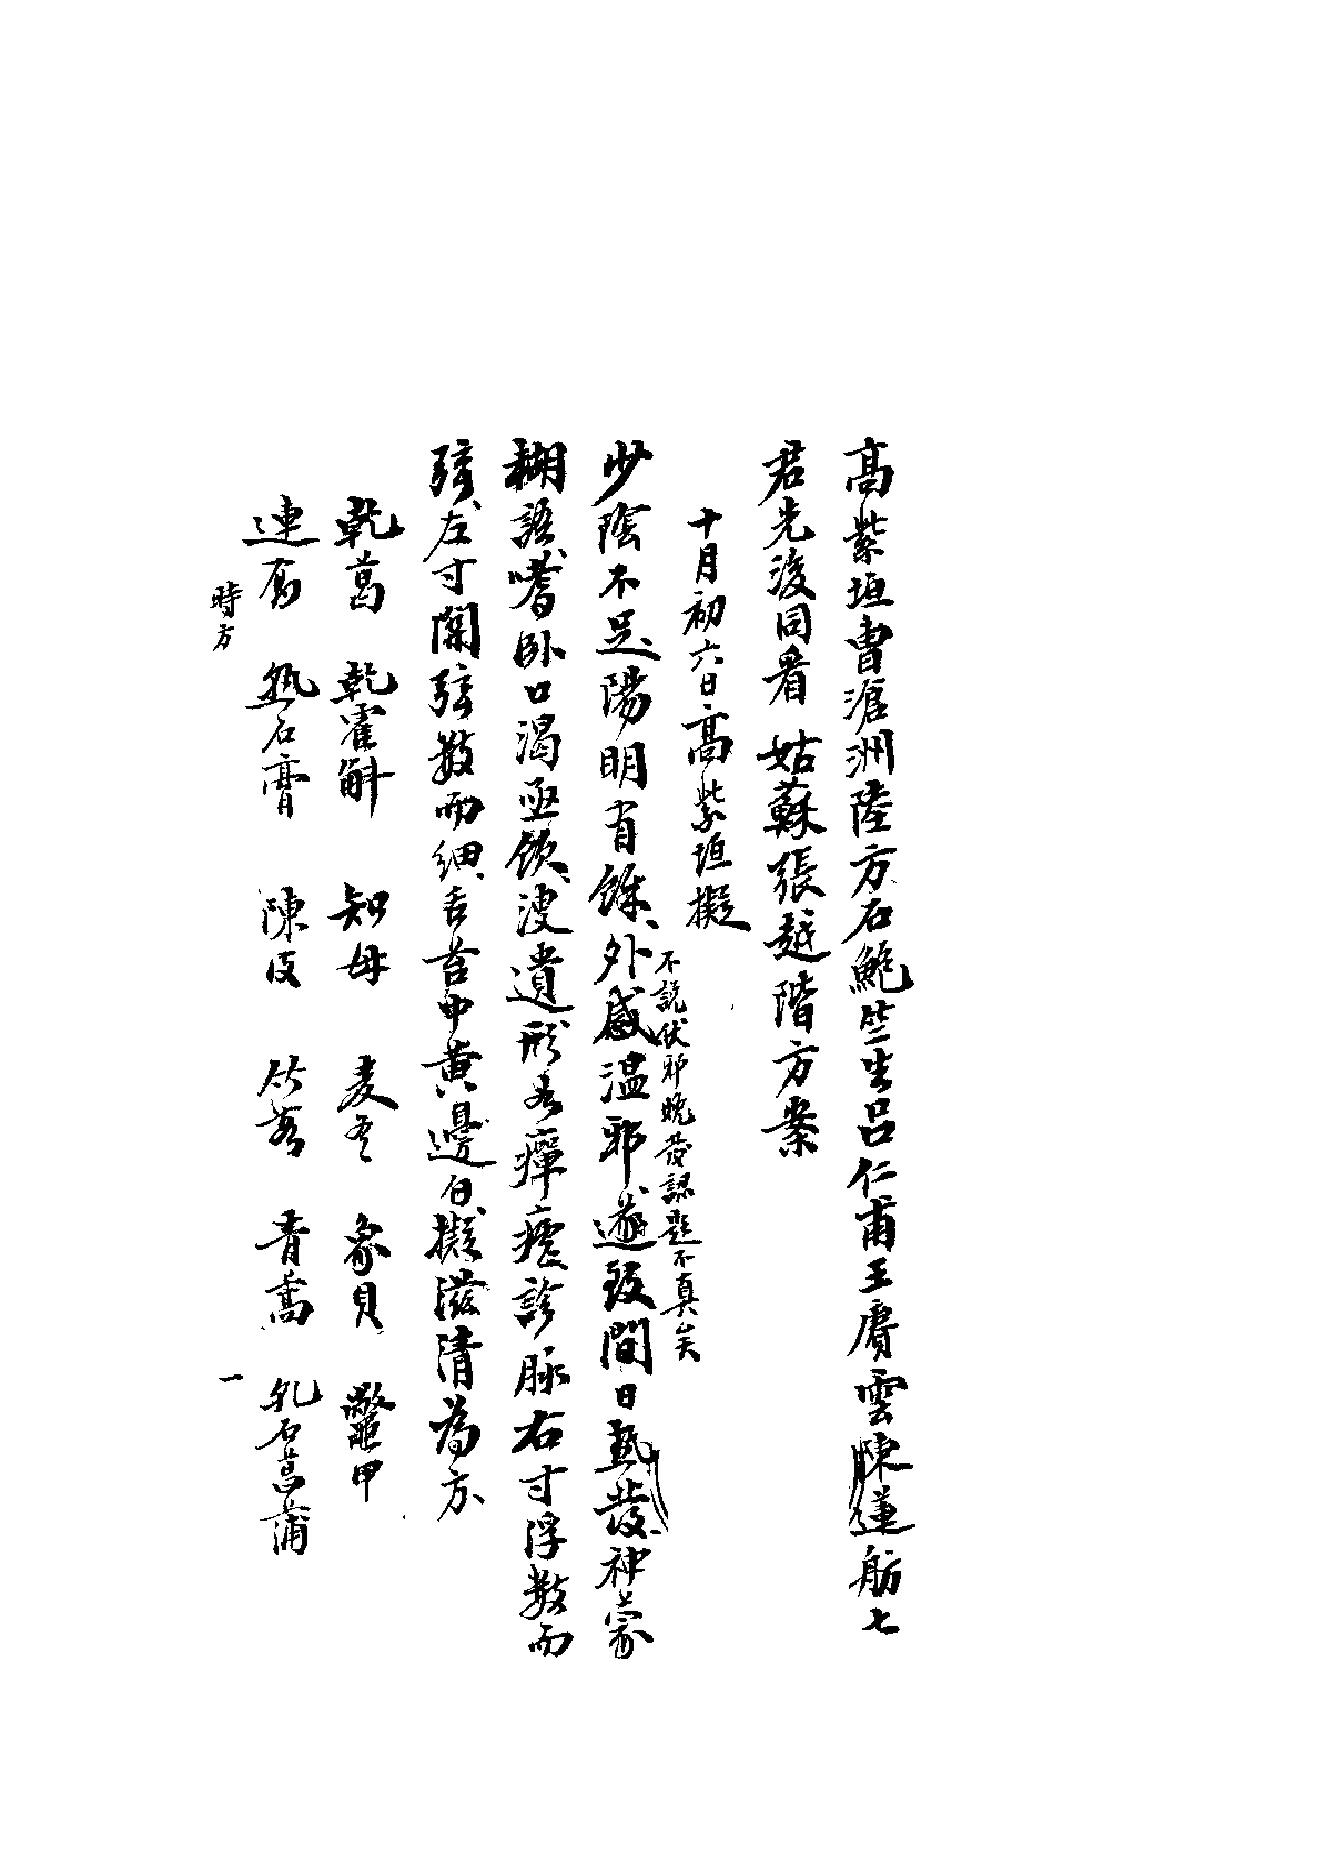 高紫垣曹滄洲陸方石鮑竺生呂仁甫王賡雲陳蓮舫七
君先後同看姑蘇張越階方案
十月初六日高紫垣擬
不說伏邪晚發認題不真矣
少陰不足陽明有餘外感溫邪遂致間日熱發神蒙
糊語嗜卧口渴亟飲溲遺形為癉瘧診脈右寸浮數而
弦左寸關弦數而細舌苔中黃邊白擬滋清為方
乾葛 乾霍斛 知母 麦冬 象貝 鱉甲
連翹 熟石膏 陳皮 竹茹 青蒿 乳石菖蒲
時方 一